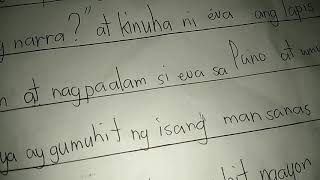 narra?" at kinuha ni eva ang lapis
at nagpaalam si eva sa Puno at
ya ay gumuhit ng isang mansanas
ngayon